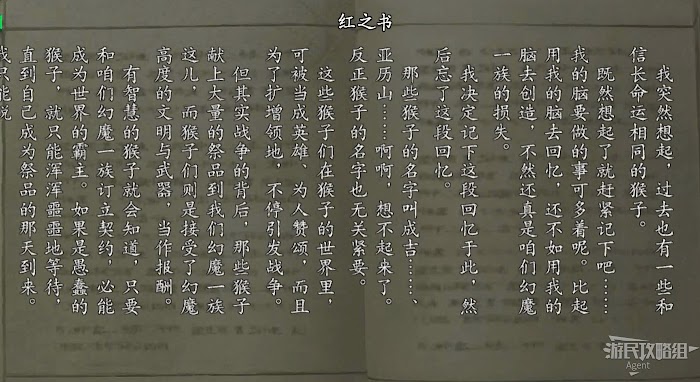 红之书
我突然想起，过去也有一些和
信长命运相同的猴子。
既然想起了就赶紧记下吧……
我的脑要做的事可多着呢。比起
用我的脑去回忆，还不如用我的
脑去创造，不然还真是咱们幻魔
一族的损失。
我决定记下这段回忆于此，然
后忘了这段回忆。
那些猴子的名字叫成吉……、
亚历山……啊啊，想不起来了。
反正猴子的名字也无关紧要。
这些猴子们在猴子的世界里，
可被当成英雄、为人赞颂，而且
为了扩增领地，不停引发战争。
但其实战争的背后，那些猴子
献上大量的祭品到我们幻魔一族
这儿，而猴子们则是接受了幻魔
高度的文明与武器，当作报酬。
有智慧的猴子就会知道，只要
和咱们幻魔一族订立契约，必能
成为世界的霸王。如果是愚蠢的
猴子，就只能浑浑噩噩地等待，
直到自己成为祭品的那天到来。
我只能说
游民攻略组
Agent